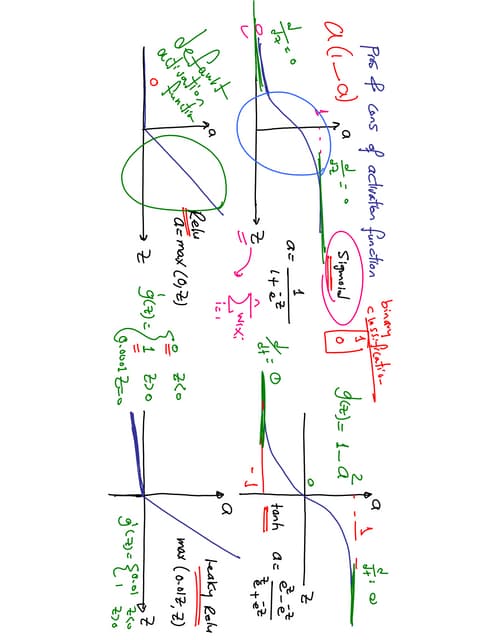 Pros & cons of activation function
a(1-a)
d/dz = 0
0
1
a
d/dz = 0
z
Sigmoid
a = 1/(1+e^-z)
n
∑ wixi
i=1
binary
classification
1
0
g'(z) = 1-a²
d/dt = 0
-1
0
1
a
d/dt = 0
z
tanh
a = (e^z - e^-z)/(e^z + e^-z)
default
activation
function
0
a
z
Relu
a = max(0,z)
g'(z) = { 0 z<0
1 z>0
0.0001 z=0
a
z
Leaky Relu
max(0.01z, z)
g'(z) = { 0.01 z<0
1 z>0